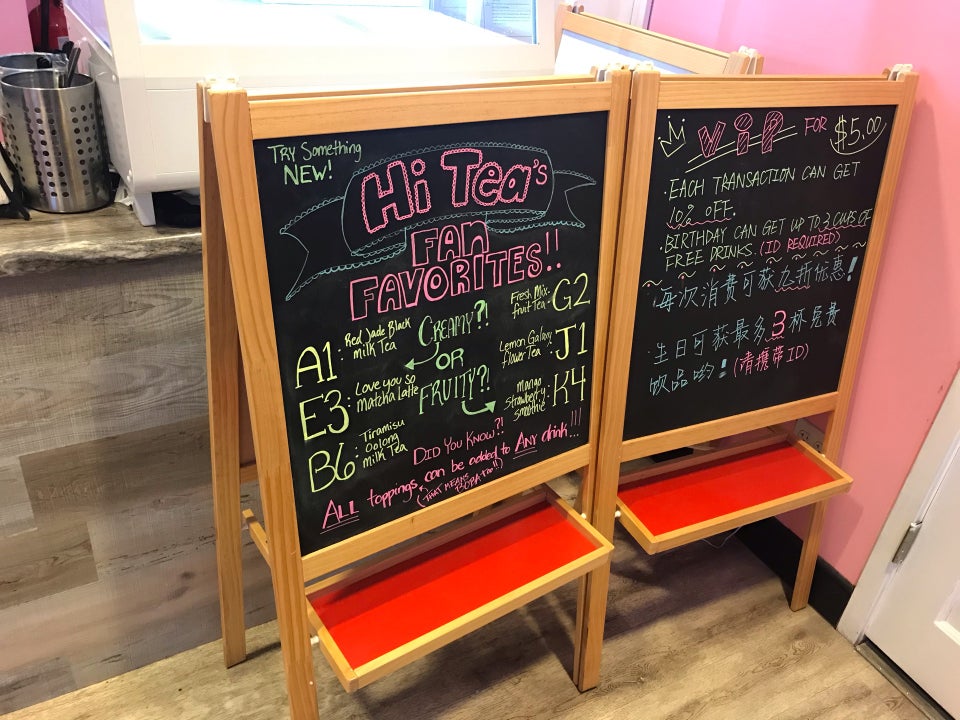 Try Something
NEW!
Hi Tea's
FAN
FAVORITES!!
A1: Red Jade Black
milk Tea
E3: Love you so
Matcha Latte
B6: Tiramisu
Oolong
milk Tea
CREAMY?!
OR
FRUITY?!
Fresh Mix
fruit Tea :G2
Lemon Galaxy
flower Tea :J1
mango
Strawberry
smoothie :K4
DID YOU KNOW?!
ALL toppings can be added to ANY drink!!!
(THAT MEANS BOBA too!!)
VIP FOR $5.00
· EACH TRANSACTION CAN GET
10% OFF.
· BIRTHDAY CAN GET UP TO 3 CUPS OF
FREE DRINKS. (ID REQUIRED)
· 每次消费可获九折优惠!
· 生日可获最多3杯免费
饮品哟! (请携带ID)